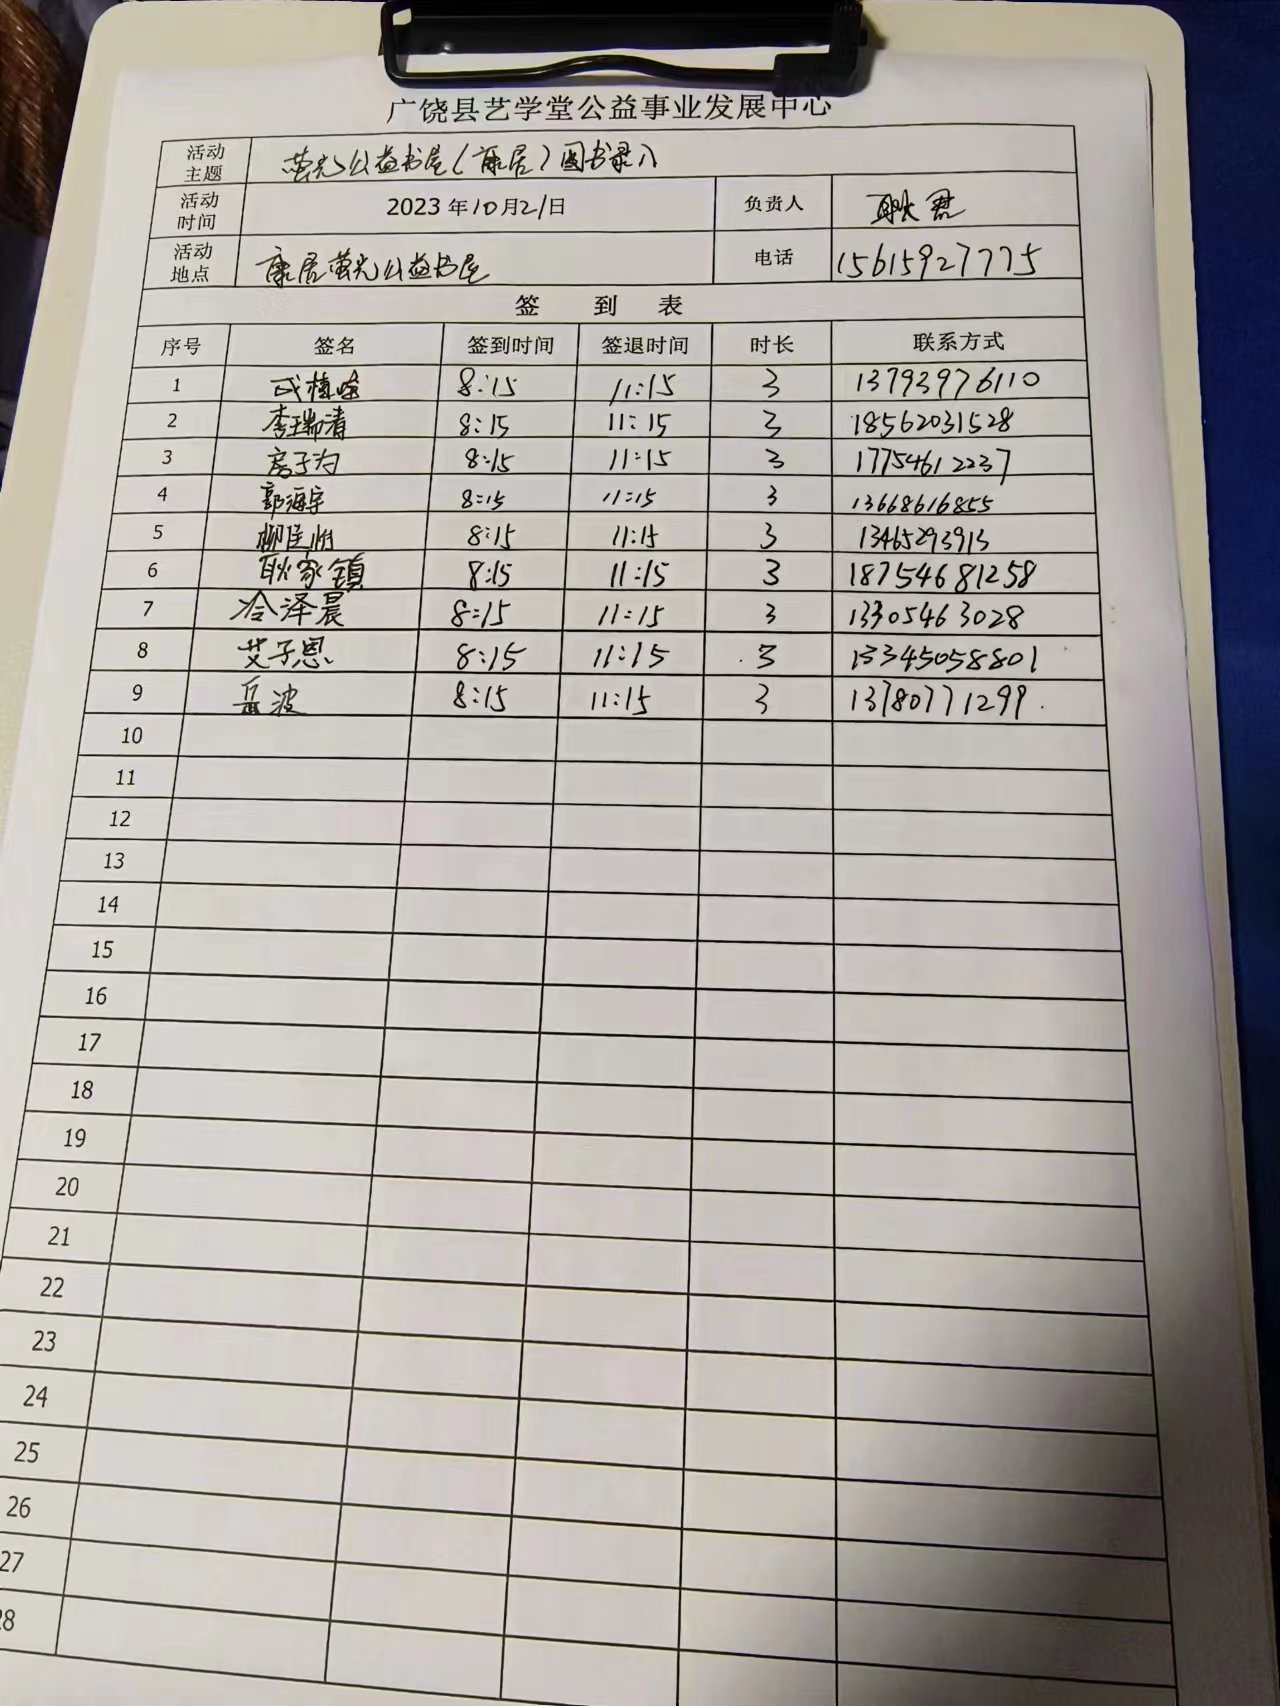 广饶县艺学堂公益事业发展中心
活动主题 萤光公益书屋(康居)图书录入
活动时间 2023年10月21日 负责人 耿君
活动地点 康居萤光公益书屋 电话 15615927775
签 到 表
序号 签名 签到时间 签退时间 时长 联系方式
1 8:15 11:15 3 13793976110
2 李瑞清 8:15 11:15 3 18562031528
3 房子为 8:15 11:15 3 17754612237
4 郭海宇 8:15 11:15 3 13668616855
5 8:15 11:15 3 13465293913
6 耿家镇 8:15 11:15 3 18754681258
7 冷泽晨 8:15 11:15 3 13305463028
8 艾子恩 8:15 11:15 3 13345058801
9 岳波 8:15 11:15 3 13780771299
10
11
12
13
14
15
16
17
18
19
20
21
22
23
24
25
26
27
28